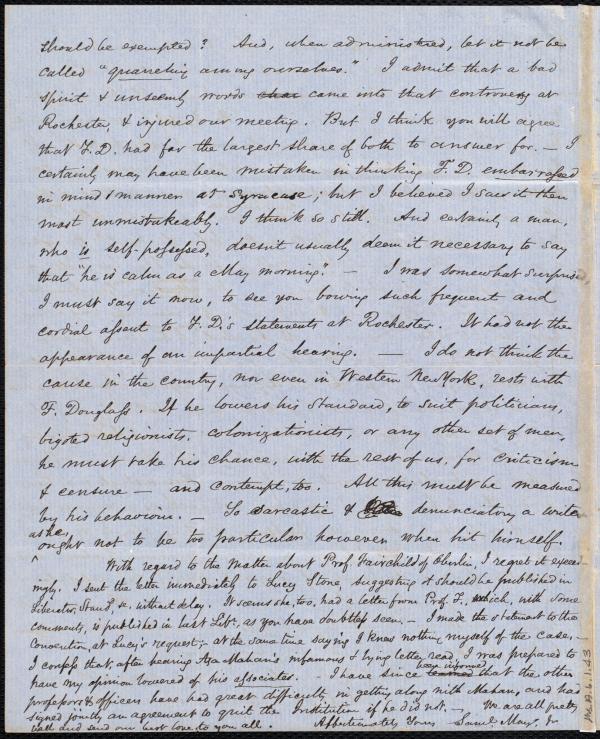 should be exempted? And, when administered, let it not be
called "quarreling among ourselves." I admit that a bad
spirit & unseemly words came into that controversy at
Rochester, & injured our meeting. But I think you will agree
that F.D. had far the largest share of both to answer for. — I
certainly may have been mistaken in thinking F.D. embarrassed
in mind & manner at Syracuse; but I believed I saw it then
most unmistakeably. I think so still. And certainly a man,
who is self-possessed, doesn't usually deem it necessary to say
that "he is calm as a May morning." — I was somewhat surprised,
I must say it now, to see you bowing such frequent and
cordial assent to F.D.'s statements at Rochester. It had not the
appearance of an impartial hearing. — I do not think the
cause in the country, nor even in Western New York, rests with
F. Douglass. If he lowers his standard, to suit politicians,
bigoted religionists, colonizationists, or any other set of men,
he must take his chance, with the rest of us, for criticism
& censure — and contempt, too. All this must be measured
by his behaviour. — So sarcastic & denunciatory a writer
as he,
ought not to be too particular however when hit himself.
With regard to the matter about Prof. Fairchild of Oberlin, I regret it exceed-
ingly. I sent the letter immediately to Lucy Stone, suggesting it should be published in
Liberator, Stand. &c. without delay. It seems she, too, had a letter from Prof. F. which, with some
comments, is published in last Libr., as you have doubtless seen. — I made the statement to the
Convention at Lucy's request, at the same time saying I knew nothing myself of the case, —
I confess that, after hearing Asa Mahan's infamous & lying letter, read, I was prepared to
have my opinion lowered of his associates. — I have since been informed that the other
professors & officers have had great difficulty in getting along with Mahan, and had
signed jointly an agreement to quit the Institution if he did not. — We are all pretty
well and send our best love to you all. Affectionately Yours Saml. May, Jr
Ms.B.1.6.